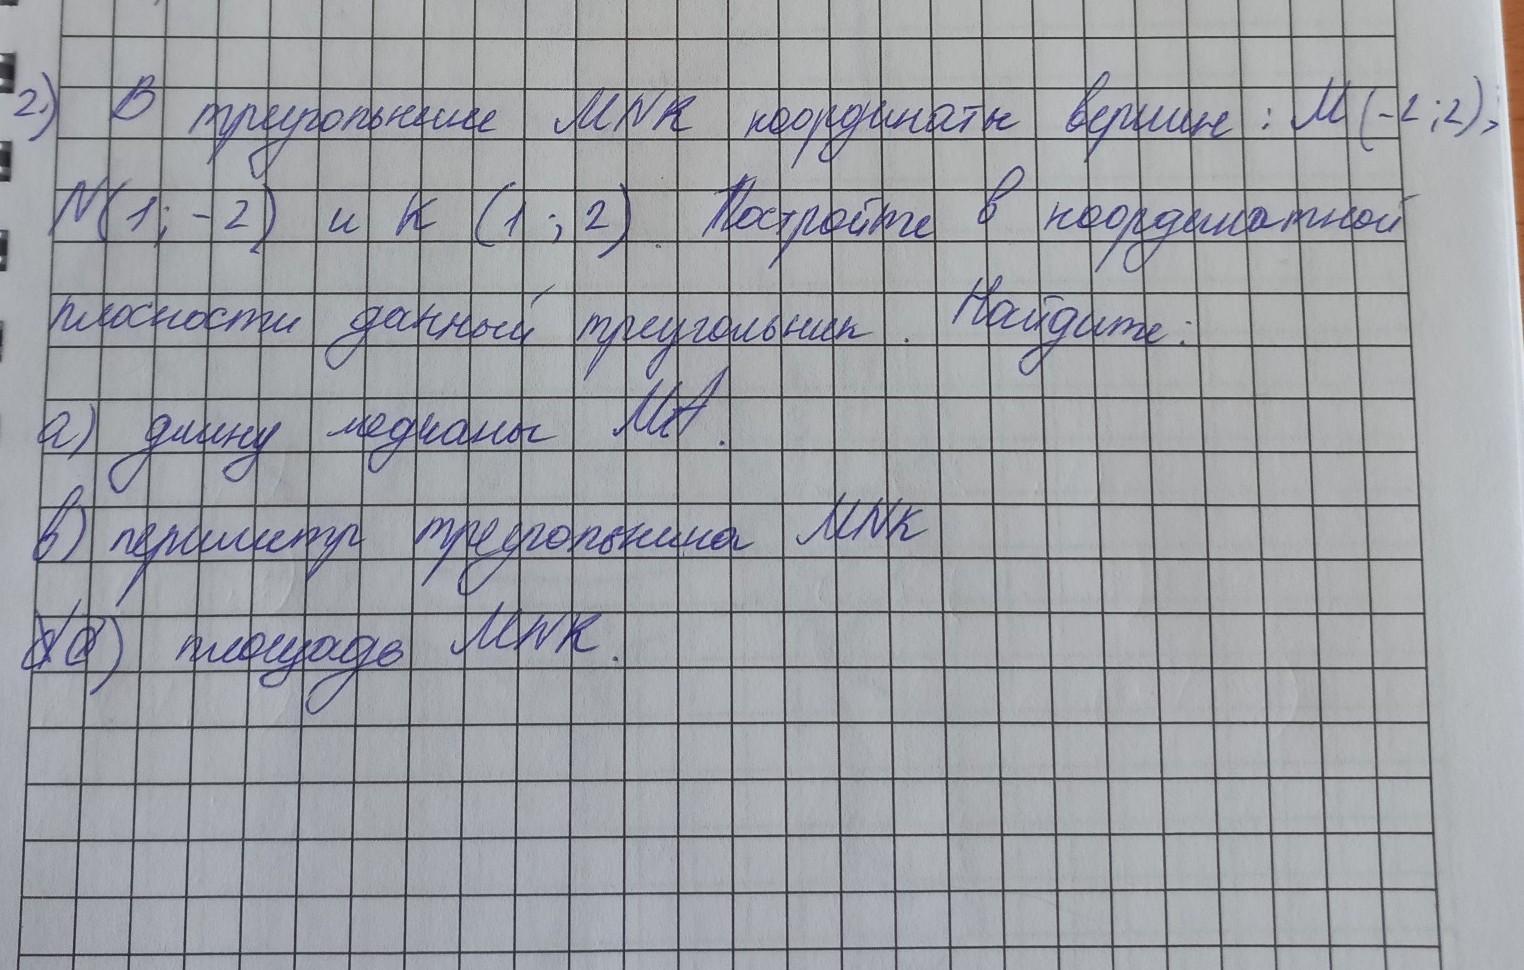 2.) В треугольнике MNK координаты вершин : M (-2 ; 2);
N(1; -2) и K (1 ; 2). Постройте в координатной
плосности данный треугольник. Найдите:
а) длину медианы MA.
в) периметр треугольника MNK
d) площадь MNK.